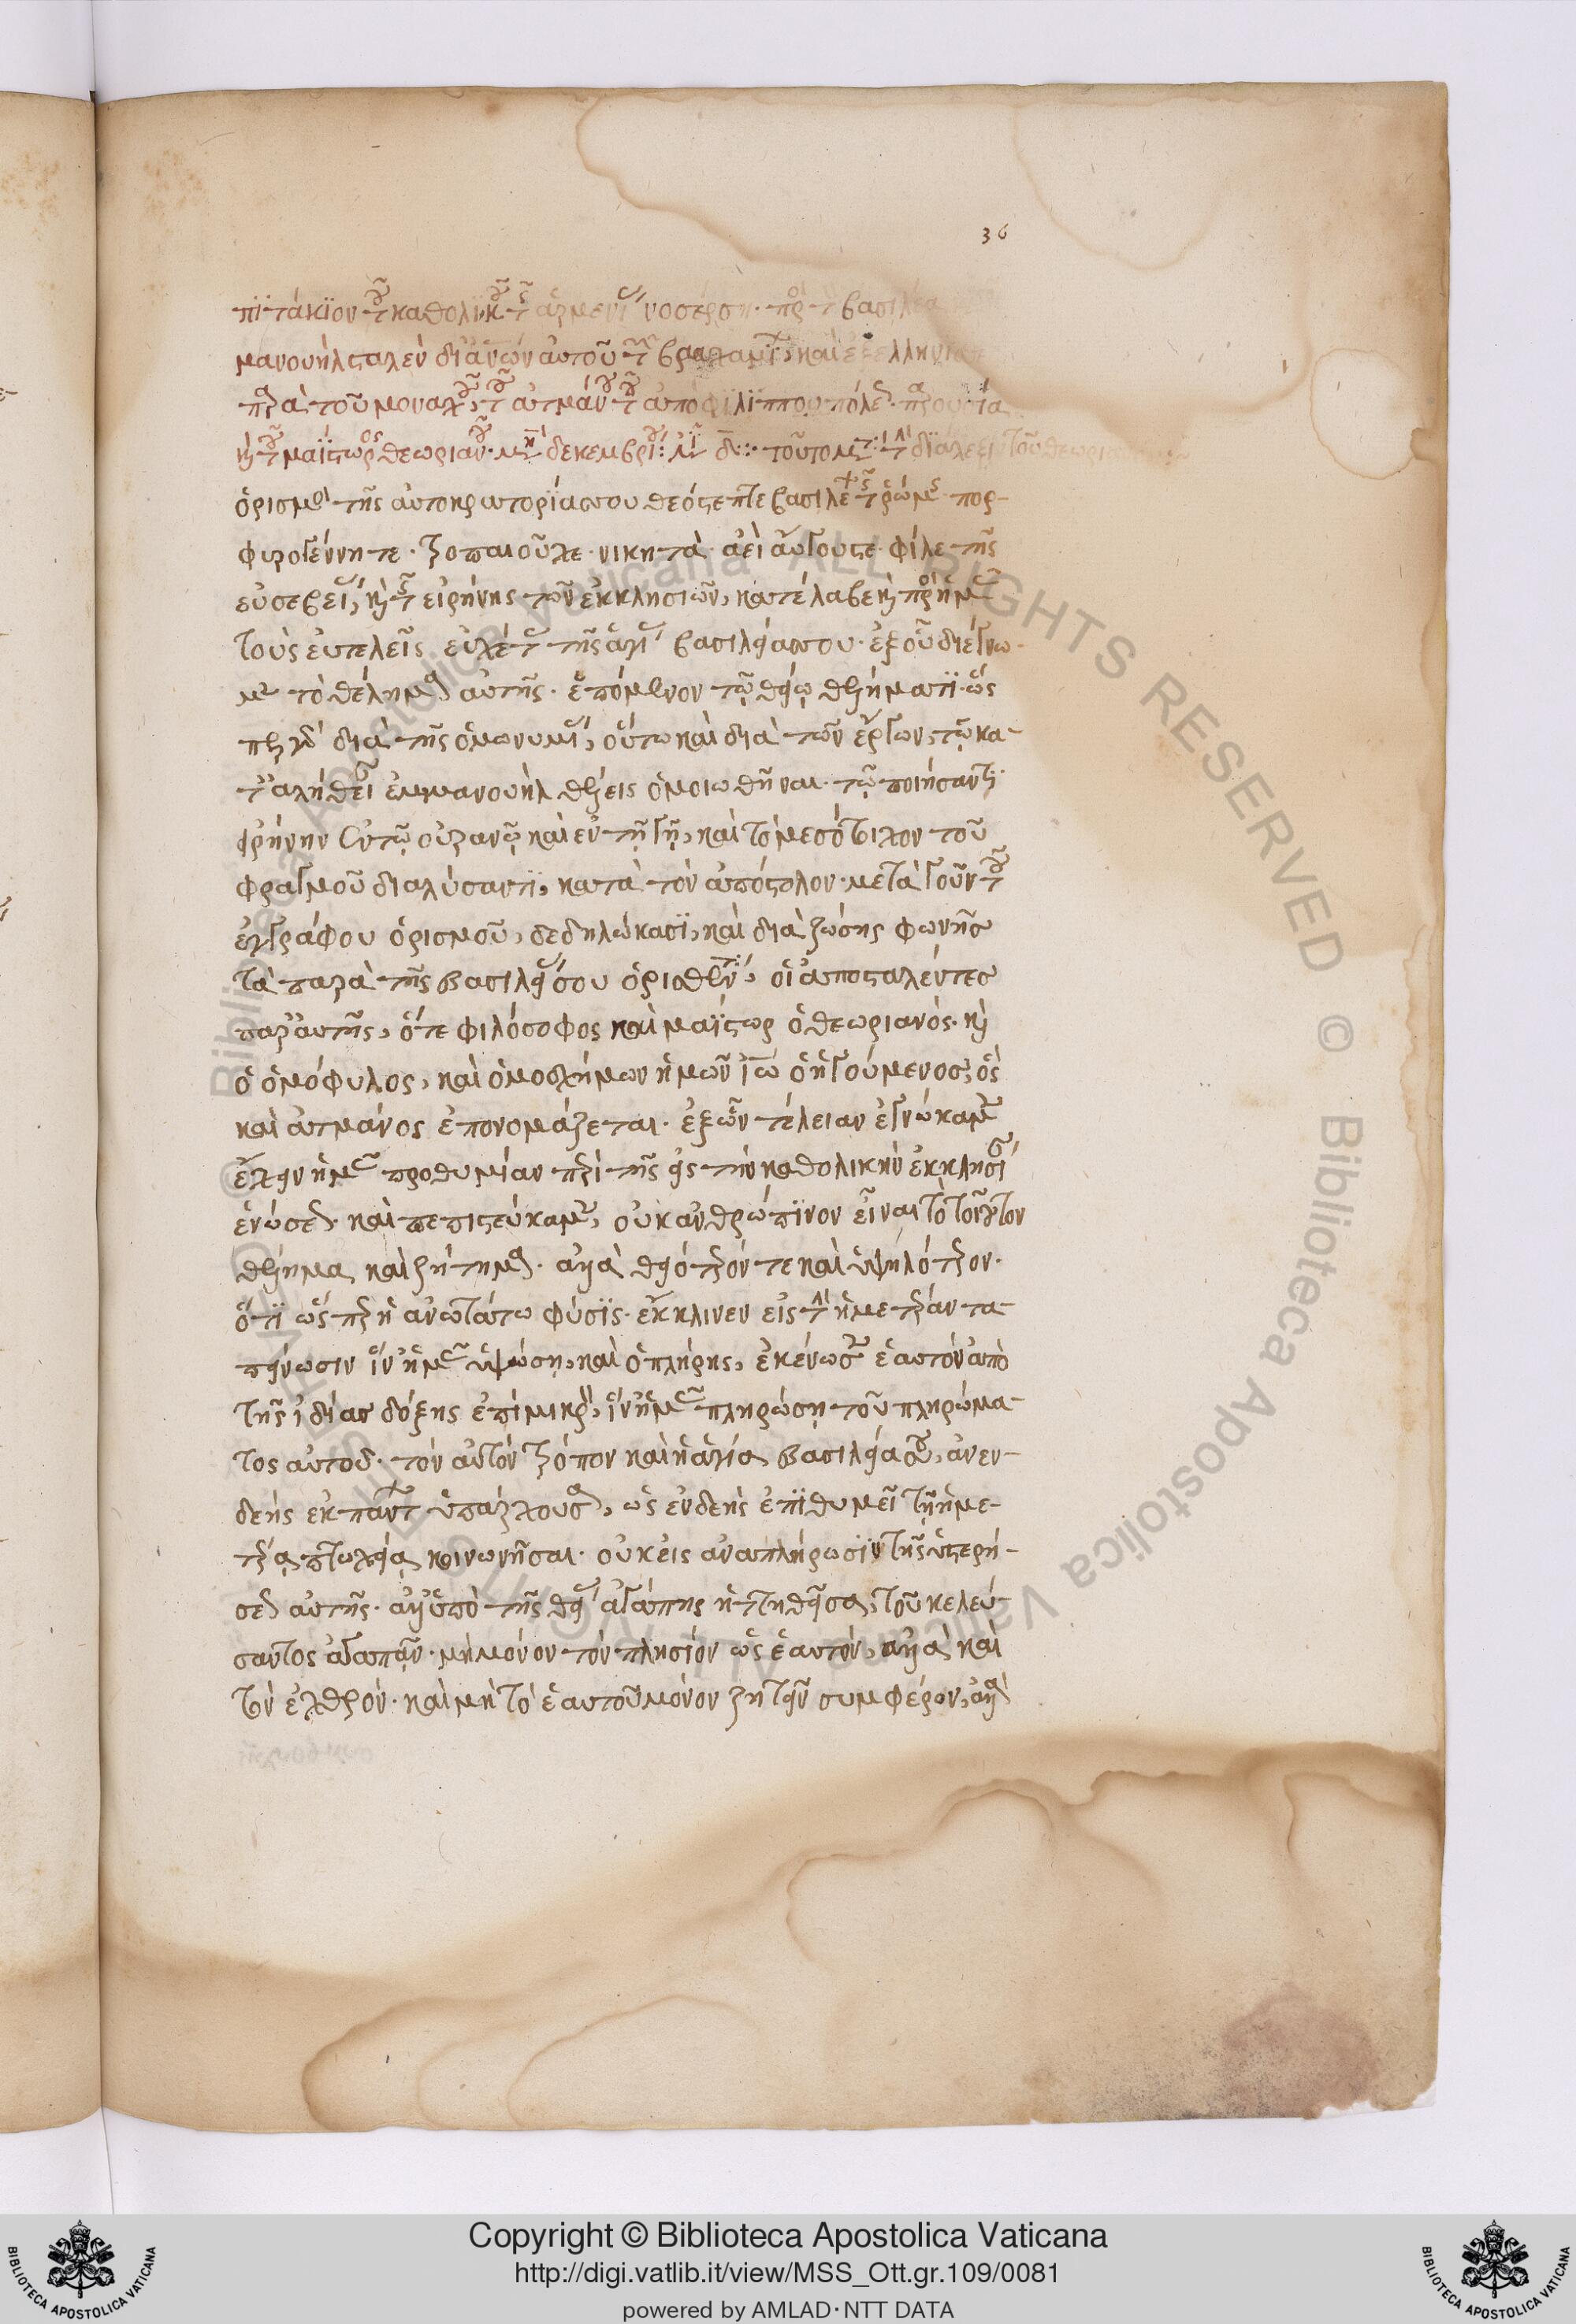 36
πιτάκιον τοῦ καθολικοῦ τῆς ἀρμενίας νοσέρση· πρὸς τὸν βασιλέα
μανουὴλ σταλὲν διὰ αὐτοῦ τοῦ καὶ ἐξελληνι
παρὰ τοῦ μοναχοῦ τοῦ ἀτμάνου τοῦ ἀπὸ φιλιππουπόλεως· παρουσίᾳ
καὶ τοῦ μαΐστωρος θεωριανοῦ· μηνὶ δεκεμβρίου τοῦτο μετὰ τὴν διάλεξιν τοῦ θεωρια
ὁρισμὸς τῆς αὐτοκρατορίας σου θεόστεπτε βασιλεῦ τῆς ῥώμης πορ-
φυρογέννητε· τροπαιοῦχε· νικητὰ ἀεὶ αὔγουστε· φίλε τῆς
εὐσεβείας, καὶ τῆς εἰρήνης τῶν ἐκκλησιῶν, κατέλαβε καὶ πρὸς ἡμᾶς
τοὺς εὐτελεῖς εὐχέτας τῆς ἁγίας βασιλείας σου· ἐξ οὗ διέγνω-
μεν τὸ θέλημα αὐτῆς· ἑπόμενον τῷ θείῳ θελήματι· ὡς
γὰρ διὰ τῆς ὁμωνυμίας, οὕτω καὶ διὰ τῶν ἔργων, τῷ κα-
τ' ἀλήθειαν ἐμμανουὴλ θέλεις ὁμοιωθῆναι· τῷ ποιήσαντι
εἰρήνην ἐν τῷ οὐρανῷ καὶ ἐν τῇ γῇ, καὶ τὸ μεσότοιχον τοῦ
φραγμοῦ διαλύσαντι, κατὰ τὸν ἀπόστολον· μετὰ γοῦν τοῦ
ἐγγράφου ὁρισμοῦ, δεδηλώκασι, καὶ διὰ ζώσης φωνῆς
τὰ παρὰ τῆς βασιλείας σου ὁρισθέντα, οἱ ἀποσταλέντες
παρ' αὐτῆς, ὅτε φιλόσοφος καὶ μαΐστωρ ὁ θεωριανός· καὶ
ὁ ὁμόφυλος, καὶ ὁμοσχήμων ἡμῶν ἰω ὁ ἡγούμενος, ὃς
καὶ ἀτμάνος ἐπονομάζεται· ἐξ ὧν τέλειαν ἐγνώκαμεν
ἔχειν ἡμᾶς προθυμίαν περὶ τῆς εἰς τὴν καθολικὴν ἐκκλησίαν
ἑνώσεως· καὶ πεπιστεύκαμεν, οὐκ ἀνθρώπινον εἶναι τὸ τοιοῦτον
θέλημα καὶ ζήτημα· ἀλλὰ θειότερόν τε καὶ ὑψηλότερον·
ὅτι ὥσπερ ἡ ἀνωτάτω φύσις· ἔκκλινεν εἰς τὴν ἡμετέραν τα-
πείνωσιν ἵν' ἡμᾶς ὑψώσῃ, καὶ ὁ πλήρης, ἐκένωσεν ἑαυτὸν ἀπὸ
τῆς ἰδίας δόξης ἐπὶ μικρὸν, ἵν' ἡμᾶς πληρώσῃ τοῦ πληρώμα-
τος αὐτοῦ· τὸν αὐτὸν τρόπον καὶ ἡ ἁγία βασιλεία σου, ἀνεν-
δεὴς ἐκ παντὸς ὑπάρχουσα, ὡς ἐνδεὴς ἐπιθυμεῖ τῇ ἡμε-
τέρᾳ πτωχείᾳ κοινωνῆσαι· οὐκ εἰς ἀναπλήρωσιν τῆς ὑστερή-
σεως αὐτῆς· ἀλλ' ὑπὸ τῆς θείας ἀγάπης ἡττηθεῖσα, τοῦ κελεύ-
σαντος ἀγαπᾶν· μὴ μόνον τὸν πλησίον ὡς ἑαυτόν, ἀλλὰ καὶ
τὸν ἐχθρόν· καὶ μὴ τὸ ἑαυτοῦ μόνον ζητεῖν συμφέρον, ἀλλὰ
Copyright © Biblioteca Apostolica Vaticana
http://digi.vatlib.it/view/MSS_Ott.gr.109/0081
powered by AMLAD·NTT DATA
BIBLIOTECA APOSTOLICA VATICANA
BIBLIOTECA APOSTOLICA VATICANA